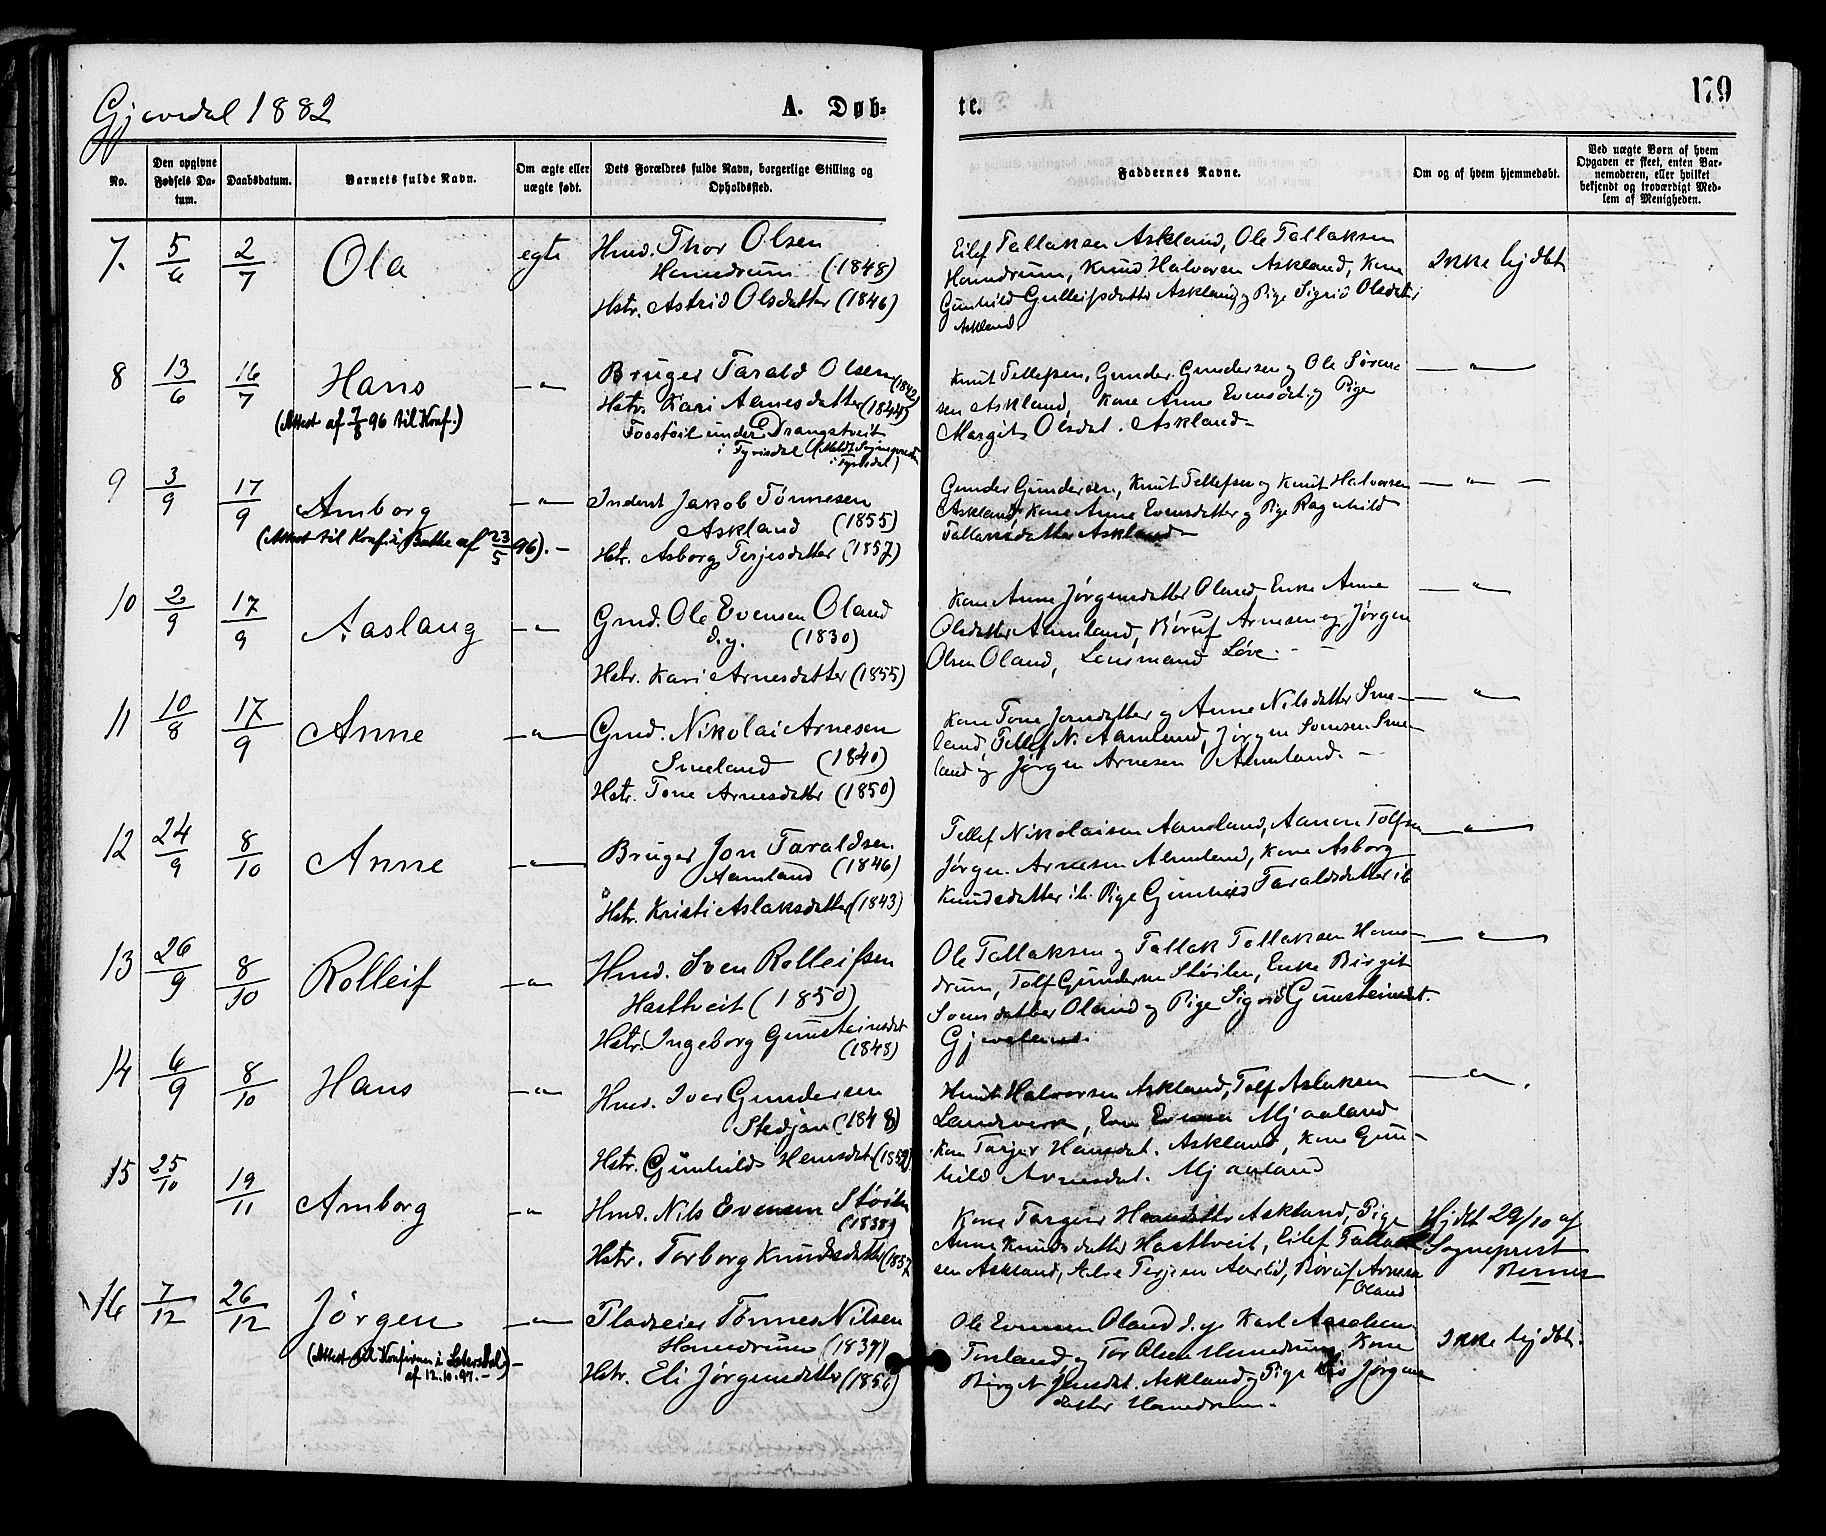 Gjøvdal 1882
A. Døb=
te.
179
No.
Den opgivne Fødsels Da-tum.
Daabsdatum.
Barnets fulde Navn.
Om ægte eller uægte født.
Dets Forældres fulde Navn, borgerlige Stilling og Opholdssted.
Faddernes Navne.
Om og af hvem hjemmedøbt.
Ved uægte Børn af hvem Opgaven er skeet, enten Bar-nemoderen, eller hvilket bekjendt og troværdigt Med-lem af Menigheden.
7. 5/6 2/7 Ola egte
Hmd. Thor Olsen
Homdrum (1848)
Hstr. Astrid Olsdatter (1846)
Eilef Tallaksen Askland, Ole Tallaksen
Homdrum, Knud Halvorsen Askland, Kone
Gunhild Gulleifsdatter Askland og Pige Sigrid Olsdatter
Askland
Ikke hjdbt
8 13/6 16/7 Hans — " —
(Attest af 7/8 96 til Konf.)
Bruger Tarald Olsen (1842)
Hstr. Kari Aanesdatter (1844)
under Drangstveit
i Tyrisdal (Meldt Sogneprest
i Tyrisdal)
Knut Tellefsen, Gunder Gundersen og Ole Søren-
sen Askland, Kone Anne Evensdt. og Pige
Margit Olsdat. Askland —
— " —
9 3/9 17/9 Amborg — " —
(Attest til Konf. i af 23/5 96). —
Inderst Jakob Tønnesen
Askland (1855)
Hstr. Asborg Terjesdatter (1857)
Gunder Gundersen, Knut Tellefsen og Knut Halvorsen
Askland, Kone Anne Evensdatter og Pige Ragnhild
Tallaksdatter Askland —
— " —
10 2/9 17/9 Aaslaug — " —
Gmd. Ole Evensen Oland
d.y. (1830)
Hstr. Kari Arnesdatter (1855)
Kone Anne Jørgensdatter Oland, Enke Anne
Olsdatter Aamland, Børuf Arnesen og Jørgen
Olsen Oland, Lensmand Løve. —
— " —
11 10/8 17/9 Anne — " —
Gmd. Nikolai Arnesen
Smeland (1840)
Hstr. Tone Arnesdatter (1850)
Kone Tone Jonsdatter og Anne Nilsdatter Sme-
land, Tellef N. Aamland, Jørgen Somsen Sme-
land og Jørgen Arnesen Aamland. —
— " —
12 24/9 8/10 Anne — " —
Bruger Jon Taraldsen
Aamland (1846)
Hstr. Kristi Aslaksdatter (1843)
Tellef Nikolaisen Aamland, Aanon Tolfsen
Jørgen Arnesen Aamland, Kone Asborg
Knudsdatter ib. Pige Gunhild Taraldsdatter ib
— " —
13 26/9 8/10 Rolleif — " —
Hmd. Sven Rolleifsen
Hasttveit (1850)
Hstr. Ingeborg Gunsteinsdt
(1848)
Ole Tallaksen og Tallak Tallaksen Hom-
drum, Tolf Gundersen Støilen, Enke Birgit
Somsdatter Oland og Pige Sigrid Gunsteinsdt.
Gjøveland.
— " —
14 6/9 8/10 Hans — " —
Hmd. Iver Gundersen
Stedjan (1848)
Hstr. Gunhild Hansdat.
Knut Halvorsen Askland, Tolf Aslaksen
Landsverk, Even Evensen Mjaaland
Kone Torjer Hansdat. Askland, Kone Gun-
hild Arnesdat. Mjaaland
— " —
15 25/10 19/11 Amborg — " —
Hmd. Nils Evensen Støilen
(1838)
Hstr. Torborg Knudsdatter (1857
Kone Torgier Hansdatter Askland, Pige
Anne Knudsdatter Hasttveit, Eilef Tallak-
sen Askland, Terjesen Aartid, Børuf Arnesen
Oland
Hjdbt 29/10 af
Sogneprest
Berner
16 7/12 26/12 Jørgen — " —
(Attest til Konfirm. i Setersdal) —
af 12.10.97. —
Pladseier Tønnes Nilsen
Homdrum (1839)
Hstr. Eli Jørgensdatter (1856)
Ole Evensen Oland d.y. Karl Aanonsen
Tonland og Tor Olsen Homdrum, Kone
Birgit Jensdat. Askland og Pige Jørgens-
datter Homdrum.
Ikke hjdbt.